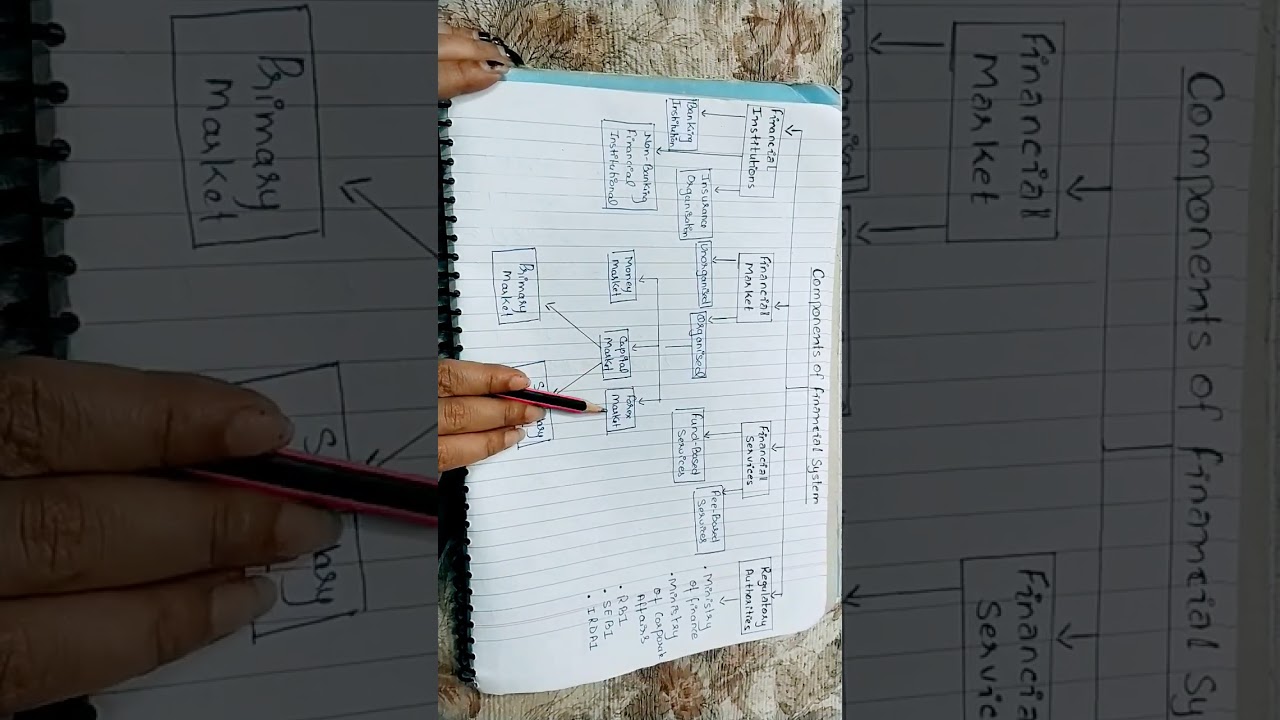 Components of financial System
Financial
Institutions
Banking
Institution
Non-Banking
Financial
Institutional
Insurance
Organisation
Financial
Market
Unorganised
Organised
Money
Market
Capital
Market
Market
Primary
Market
Financial
Services
Fund-Based
Services
Fee-Based
Services
Regulatory
Authorities
• Ministry
of finance
• Ministry
of Corporate
Affairs
• RBI
• SEBI
• IRDAI
Components of financial Sy
Financial
Market
Primary
Market